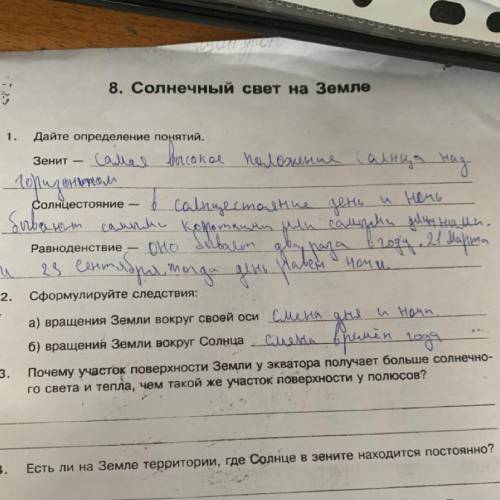 8. Солнечный свет на Земле
1. Дайте определение понятий.
Зенит — самая высокое положение салнца над
горизонтом
Солнцестояние — в салнцестояние день и ночь
бывают самыми короткими или самыми длинными.
Равноденствие — оно бывает два раза в году. 21 марта
и 23 сентября, тогда день равен ночи
2. Сформулируйте следствия:
а) вращения Земли вокруг своей оси смена дня и ночи.
б) вращения Земли вокруг Солнца смена времён года
3. Почему участок поверхности Земли у экватора получает больше солнечно-
го света и тепла, чем такой же участок поверхности у полюсов?
4. Есть ли на Земле территории, где Солнце в зените находится постоянно?